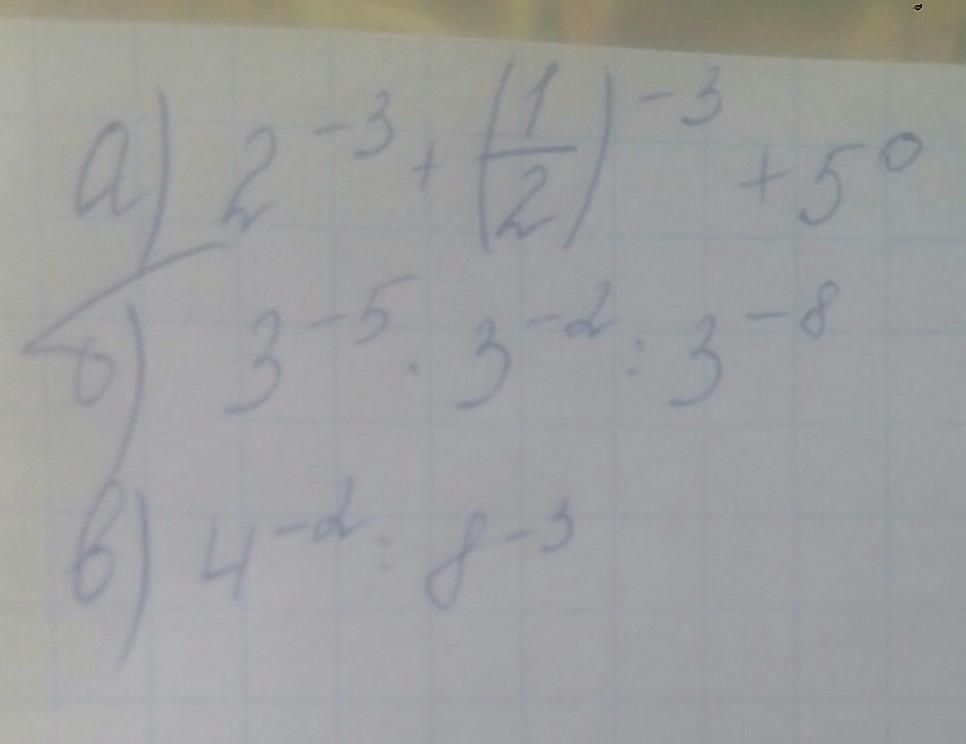 а) 2⁻³ + (1/2)⁻³ + 5⁰
б) 3⁻⁵ · 3⁻² : 3⁻⁸
в) 4⁻² : 8⁻³